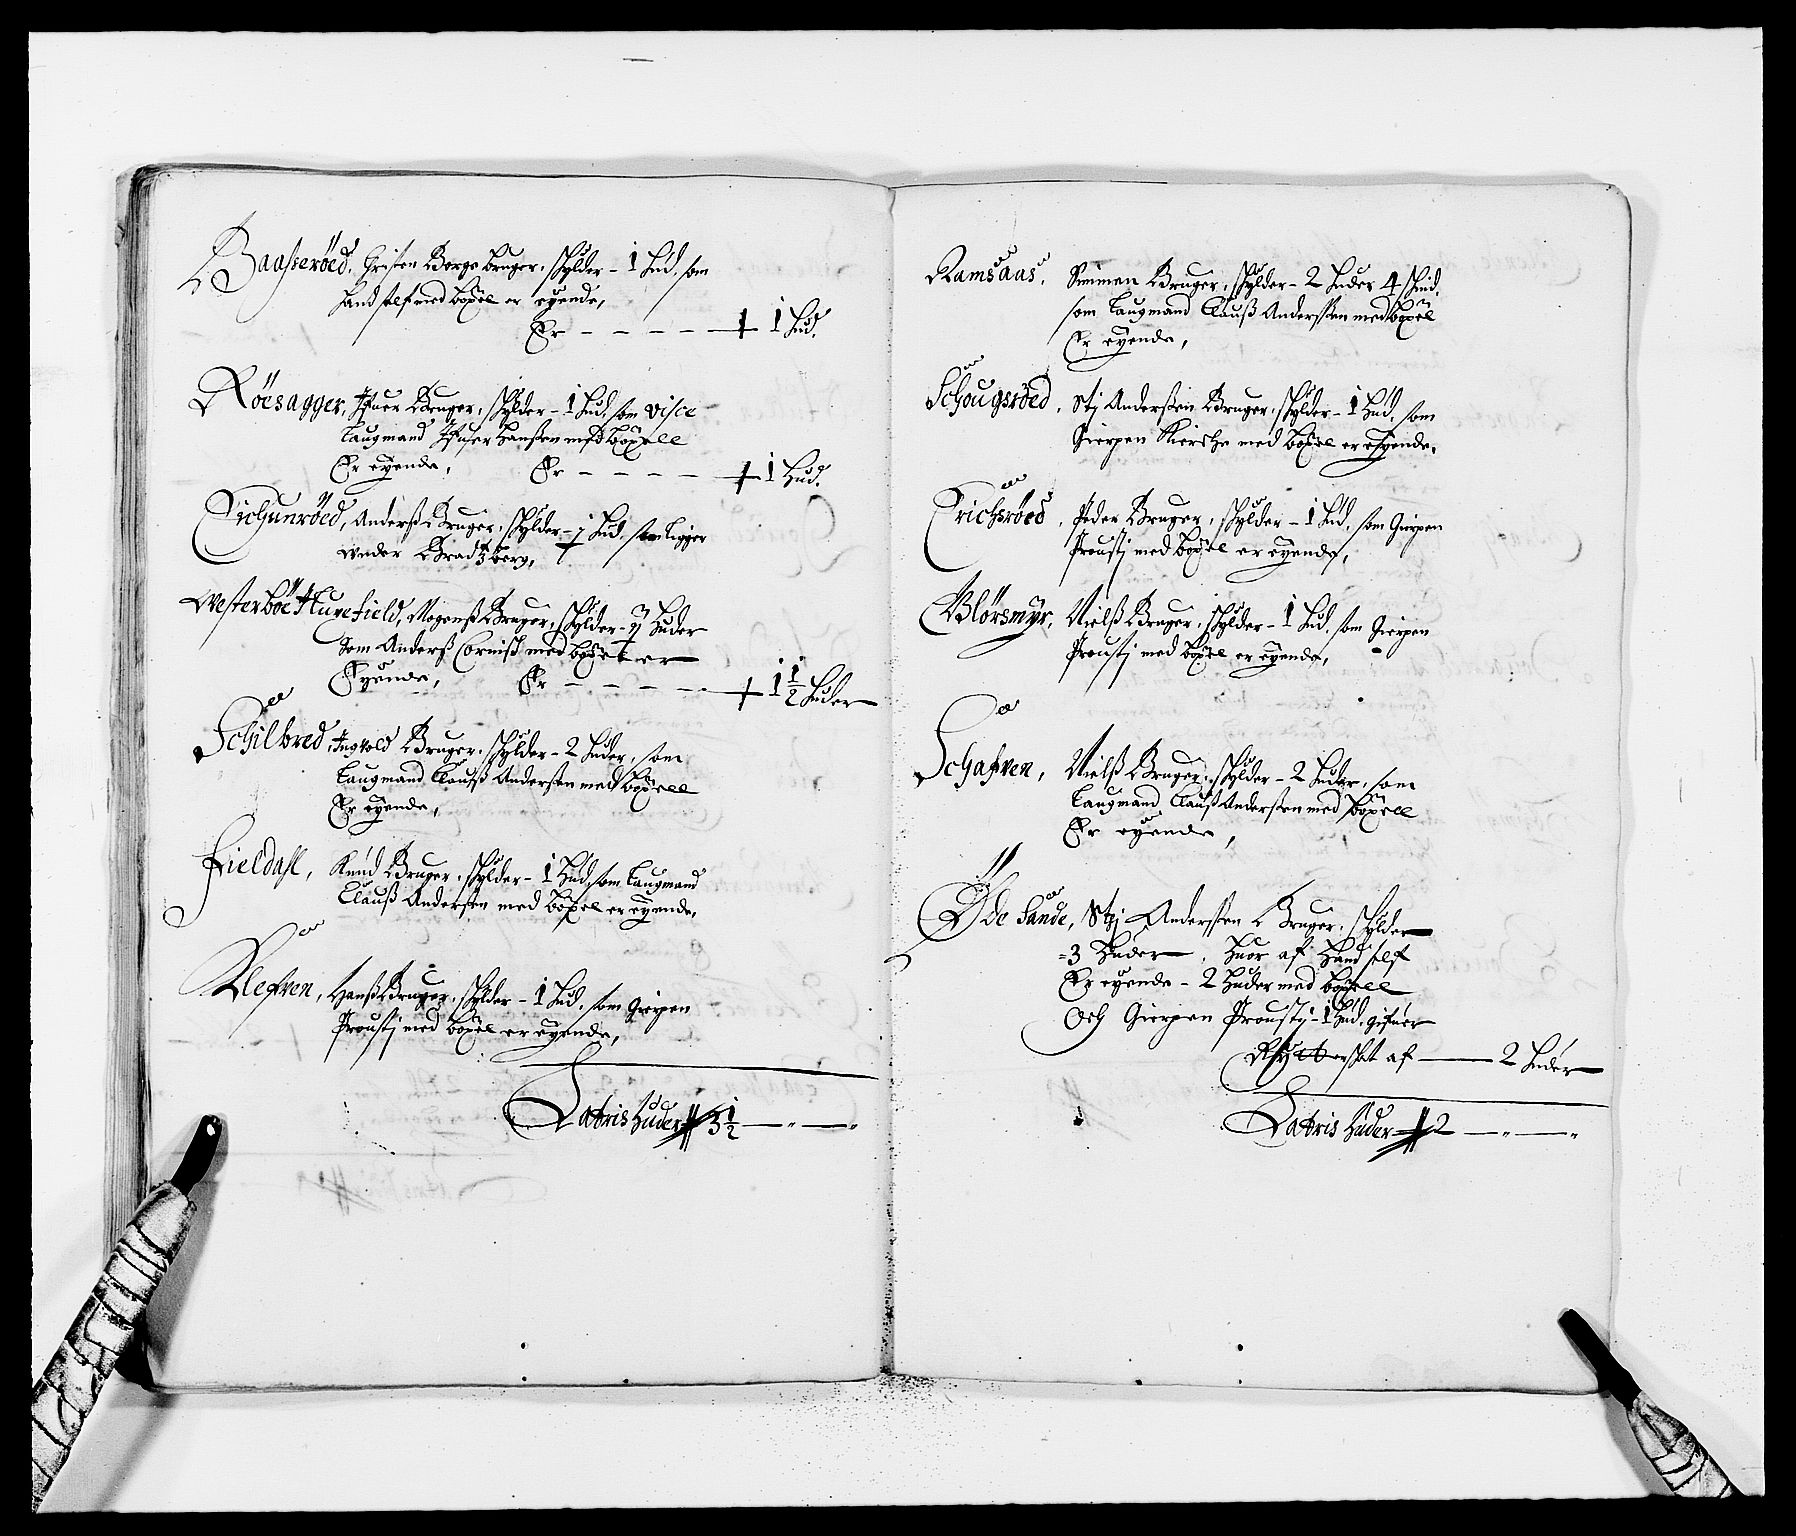 Baasserøed, Christen Borge bruger, schylder - 1 Hud, som
hand self med böxel er eyende,
Er - - - - - 1 Hud.
Röesagger, Ifuer Bruger, schylder - 1 Hud, som visce
Laugmand Ifuer Hanßen med böxell
Er eyende, Er - - - - 1 Hud.
Sichunröed, Anderß Bruger, schylder - ½ Hud, som ligger
under Bradtzberg,
Westerböe Hurefield, Mogenß Bruger, schylder - 1½ Huder
Som Anderß Cornisch med böxel er
Eyende, Er - - - - 1½ Huder
Schilbred, Ingvold Bruger, schylder - 2 Huder, som
Laugmand Clauß Anderßen med böxell
Er eyende,
Fieldahl, Knud Bruger, schylder - 1 Hud, som Laugmand
Clauß Anderßen med böxel er eyende,
Klefven, Hanß Bruger, schylder - 1 Hud, som Gierpen
Proustj med böxel er eyende,
Latris Huder 3½ - " - "
Ramsaas, Simmen Bruger, schylder - 2 Huder 4 schind,
som Laugmand Clauß Anderßen med böxel
Er eyende,
Schougsröed, Stj Anderßen Bruger, schylder - 1 Hud, som
Gierpen Kierche med böxel er eyende,
Erichsröed, Peder Bruger, schylder - 1 Hud, som Gierpen
Proustj med böxel er eyende,
Blörsmyr, Nielß Bruger, schylder - 1 Hud, som Gierpen
Proustj med böxel er eyende,
Schafven, Nielß Bruger, schylder - 2 Huder, som
Laugmand Clauß Anderßen med böxell
Er eyende,
Öde Sande, Stj Anderßen Bruger, schylder
- 3 Huder, Huor af Hand self
Er eyende - 2 Huder med böxell
Och Gierpen Proustj - 1 Hud, gifuer
Rytterschat af - 2 Huder
Latris Huder 2 - " - "